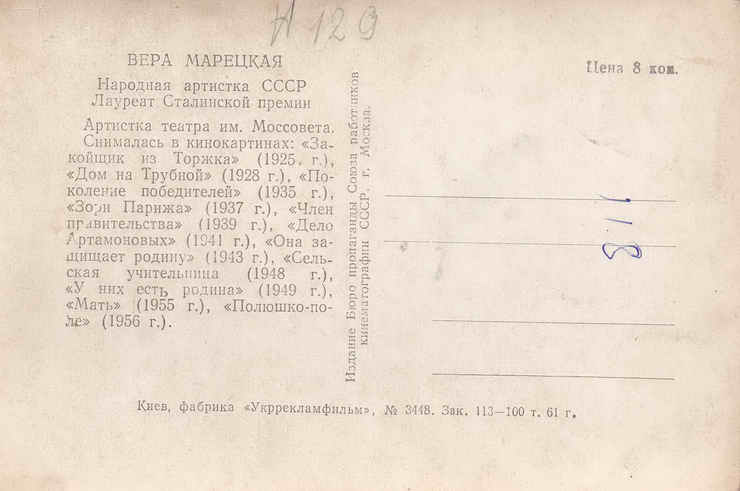 А 129
ВЕРА МАРЕЦКАЯ
Народная артистка СССР
Лауреат Сталинской премии
Артистка театра им. Моссовета.
Снималась в кинокартинах: «За-
койщик из Торжка» (1925 г.),
«Дом на Трубной» (1928 г.), «По-
коление победителей» (1935 г.),
«Зори Парижа» (1937 г.), «Член
правительства» (1939 г.), «Дело
Артамоновых» (1941 г.), «Она за-
щищает родину» (1943 г.), «Сель-
ская учительница (1948 г.),
«У них есть родина» (1949 г.),
«Мать» (1955 г.), «Полюшко-по-
ле» (1956 г.).
Издание Бюро пропаганды Союза работников
кинематографии СССР. г. Москва.
Цена 8 коп.
811
Киев, фабрика «Укррекламфильм», № 3448. Зак. 113—100 т. 61 г.